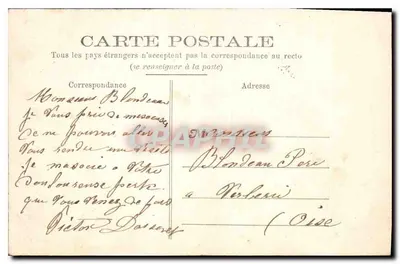 CARTE POSTALE
Tous les pays étrangers n'acceptent pas la correspondance au recto
(se renseigner à la poste)
Correspondance
Adresse
Monsieur Blondeau
je vous prie de
de ne pouvoir
vous rendre une
je m'associe à votre
douloureuse perte
que vous venez de
Victor
Monsieur
Blondeau Père
a Verberie
(Oise